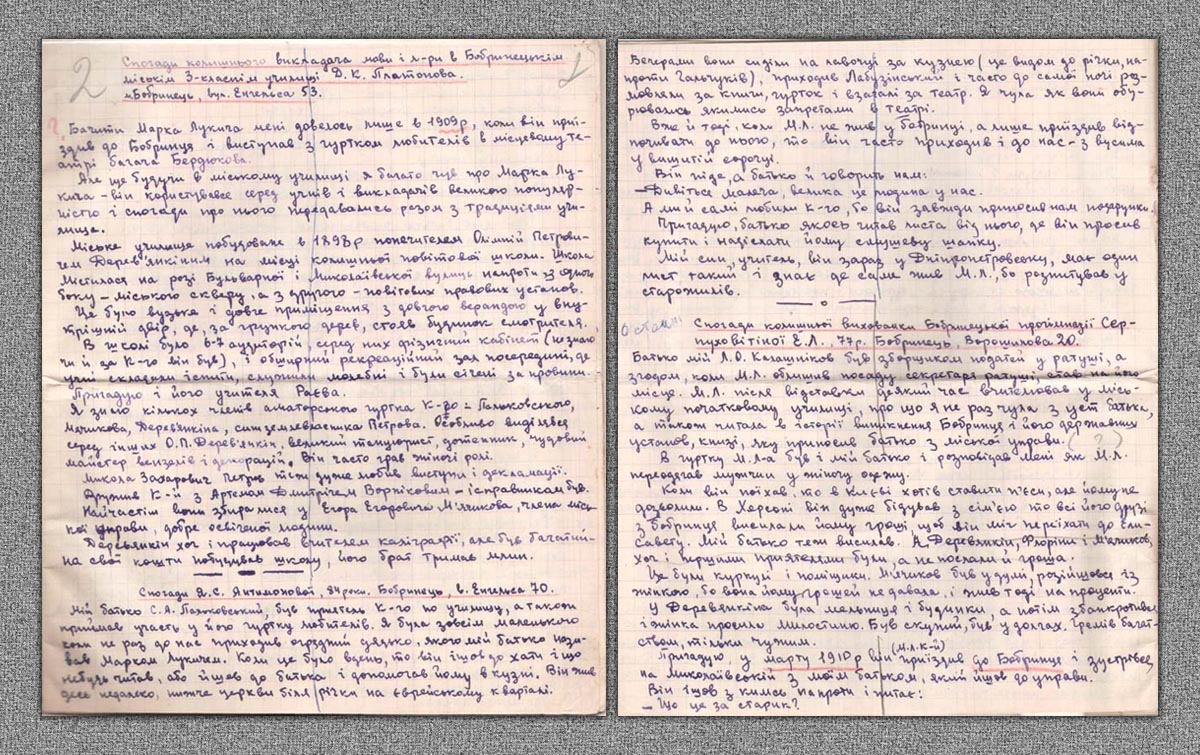 2
1
Спогади колишнього викладача мови і л-ри в Бобринецкім
міськім 3-класнім училищі Д.К. Платонова.
м. Бобринець, вул. Енгельса 53.
Бачити Марка Лукича мені довелось лише в 1909р, коли він приї-
здив до Бобринця і виступав з гуртком любителів в місцевому те-
атрі багача Бердюкова.
Але ще будучи в міському училищі я багато чув про Марка Лу-
кича - він користувавсе серед учнів і викладачів великою популяр-
ністю і спогади про нього передавались разом з традиціями учи-
лища.
Міське училище побудоване в 1898р попечителем Олімпій Петрови-
чем Дерев'янкіним на місці колишньої повітової школи. Школа
містилася на розі Бульварної і Миколаївської вулиць напроти із одного
боку - міського скверу, а з другого - повітових правових установ.
Це було вузьке і довге приміщення з довгою верандою у вну-
трішній двір, де, за грудкого дерев, стояв будинок смотрителя.
В школі було 6-7 аудиторій, серед них фізичний кабінет (не знаю
чи й за К-го він був), і обширний рекреаційний зал посередині, де
учні складали іспити, служили молебні і були січені за провини.
Пригадую і його учителя Раєва.
Я знаю кількох членів аматорського гуртка К-го: Паньковського,
Мячикова, Дерев'янкіна, син землевласника Петрова. Особливо виділявся
серед інших О.П. Дерев'янкін, великий танцюрист, дотепник, чудовий
майстер вензелів і декорацій. Він часто грав жіночі ролі.
Микола Захарович Петров теж дуже любив виступи і декламації.
Дружив К-й з Артемом Дмитрічем Ворніковим - ісправником був.
Найчастіш вони збиралися у Егора Егоровича М'ячикова, члена місь-
кої управи, добре освіченої людини.
Деревьянкін хоч і працював вчителем каліграфії, але був багатий -
на свої кошти побудував школу, його брат тримав млин.
Спогади Я.С. Антимонової, роки. Бобринець, в. Енгельса 70.
Мій батько С.А. Паньковський, був приятель К-го по училищу, а також
приймав участь у його гуртку любителів. Я була зовсім маленькою
коли не раз до нас приходив огрядний дядько, якого мій батько нази-
вав Марком Лукичем. Коли це було вдень, то він ішов до хати і що
небудь читав, або йшов до батька і допомогав йому в кузні. Він жив
десь недалеко, нижче церкви біля річки на єврейському кварталі.
Вечерами вони сиділи на лавочці за кузнею (це видом до річки, на-
проти Гальчуків), приходив Лабузінський і часто до самої ночі роз-
мовляли за книги, гурток і взагалі за театр. Я чула як вони обу-
рювались якимись запретами в театрі.
Вже й тоді, коли М.Л. не жив у Бобринці, а лише приїздив від-
почивати до нього, то він часто приходив і до нас - з вусима
у вишитій сорочці.
Він піде, а батько й говорить нам:
- Дивіться малеча, велика це людина у нас.
А ми й самі любили К-го, бо він завжди приносив нам подарунки.
Пригадую, батько якось читав листа від нього, де він просив
купити і надіслати йому смушеву шапку.
Мій син, учитель, він зараз у Дніпропетровську, має один
лист такий і знає де саме жив М.Л., бо розпитував у
старожилів.
Спогади колишньої вихованки Бобринецької прогімназії Сер-
пуховітіної Е.Л., 77р. Бобринець, Ворошилова 20.
Батько мій Л.О. Калашніков був зборщиком податей у ратуші, а
згодом, коли М.Л. облишив посаду секретаря ратуші, став на його
місце. М.Л. після відставки деякий час вчителював у місь-
кому початковому училищі, про що я не раз чула з уст батька,
а також читала в історії виникнення Бобринця і його державних
установ, книзі, яку приносив батько з міської управи. (?)
В гуртку М.Л-а був і мій батько і розповідав мені як М.Л.
переодягав мужчин у жіночу одежу.
Коли він поїхав, то в Києві хотів ставити п'єси, але йому не
дозволили. В Херсоні він дуже бідував з сім'єю то всі його друзі
з Бобринця висилали йому гроші, щоб він міг переїхати до Єли-
савету. Мій батько теж висилав. А Деревянкін, Флоріни і Мячиков,
хоч і першими приятелями були, а не послали й гроша.
Це були куркулі і поміщики. М'ячиков був у думі, розійшовся із
жінкою, бо вона йому грошей не давала, і жив тоді на проценти.
У Деревянкіна була мельниця і будинки, а потім збанкротився
і жінка просила милостиню. Був скупий, був у долгах. Гремів багат-
ством, тільки чужим.
(М.Л.К-й)
Пригадую, у марту 1910р він приїздив до Бобринця і зустрівся
на Миколаївській з моїм батьком, який йшов до управи.
Він ішов з кимсь напроти і питає:
- Що це за старик?